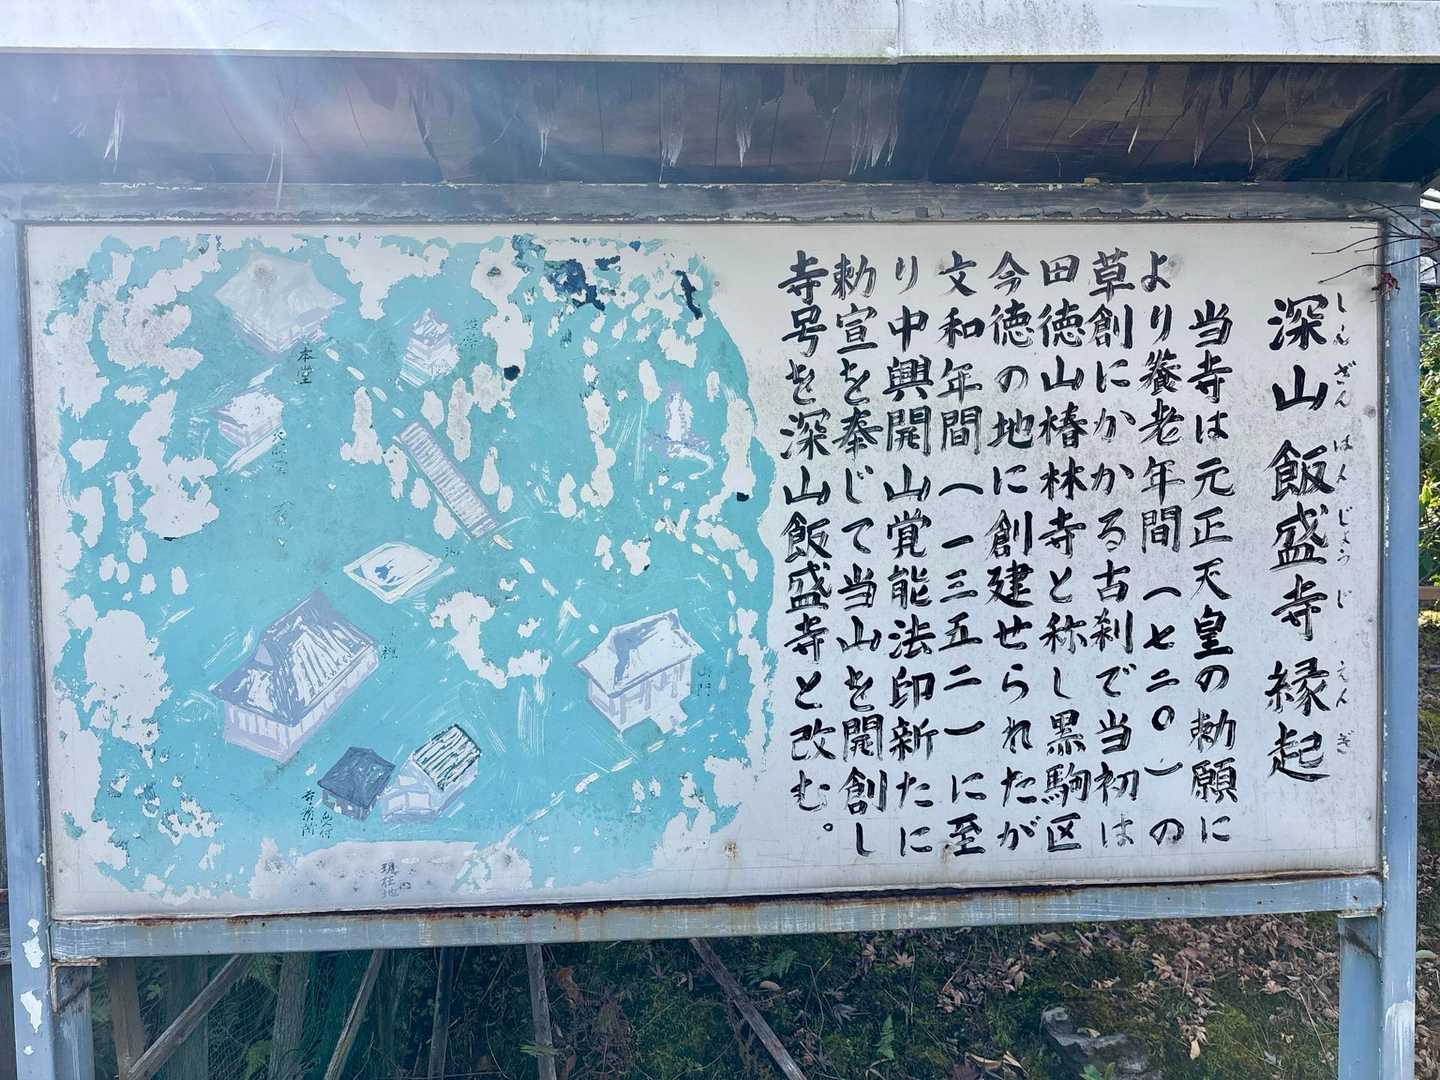 深山飯盛寺縁起
しんざんはんじょうじえんぎ
当寺は元正天皇の勅願に
より養老年間（七二〇）の
草創にかかる古刹で当初は
田徳山椿林寺と称し黒駒区
今徳の地に創建せられたが
文和年間（一三五二）に至
り中興開山覚能法印新たに
勅宣を奉じて当山を開創し
寺号を深山飯盛寺と改む。
本堂
山門
寺務所
受付
現在地